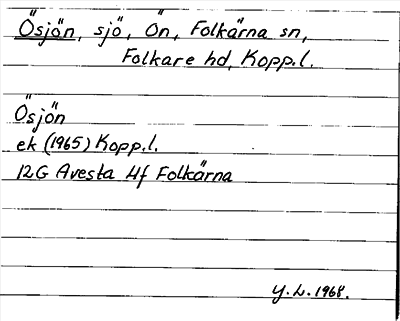 Ösjön, sjö, Ön, Folkärna sn,
Folkare hd, Kopp.l.
Ösjön
ek (1965) Kopp.l.
12G Avesta 4f Folkärna
Y.L. 1968.